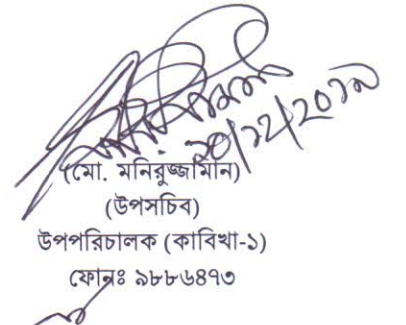 (মো. মনিরুজ্জামান)
(উপসচিব)
উপপরিচালক (কাবিখা-১)
ফোনঃ ৯৮৮৬৪৭৩